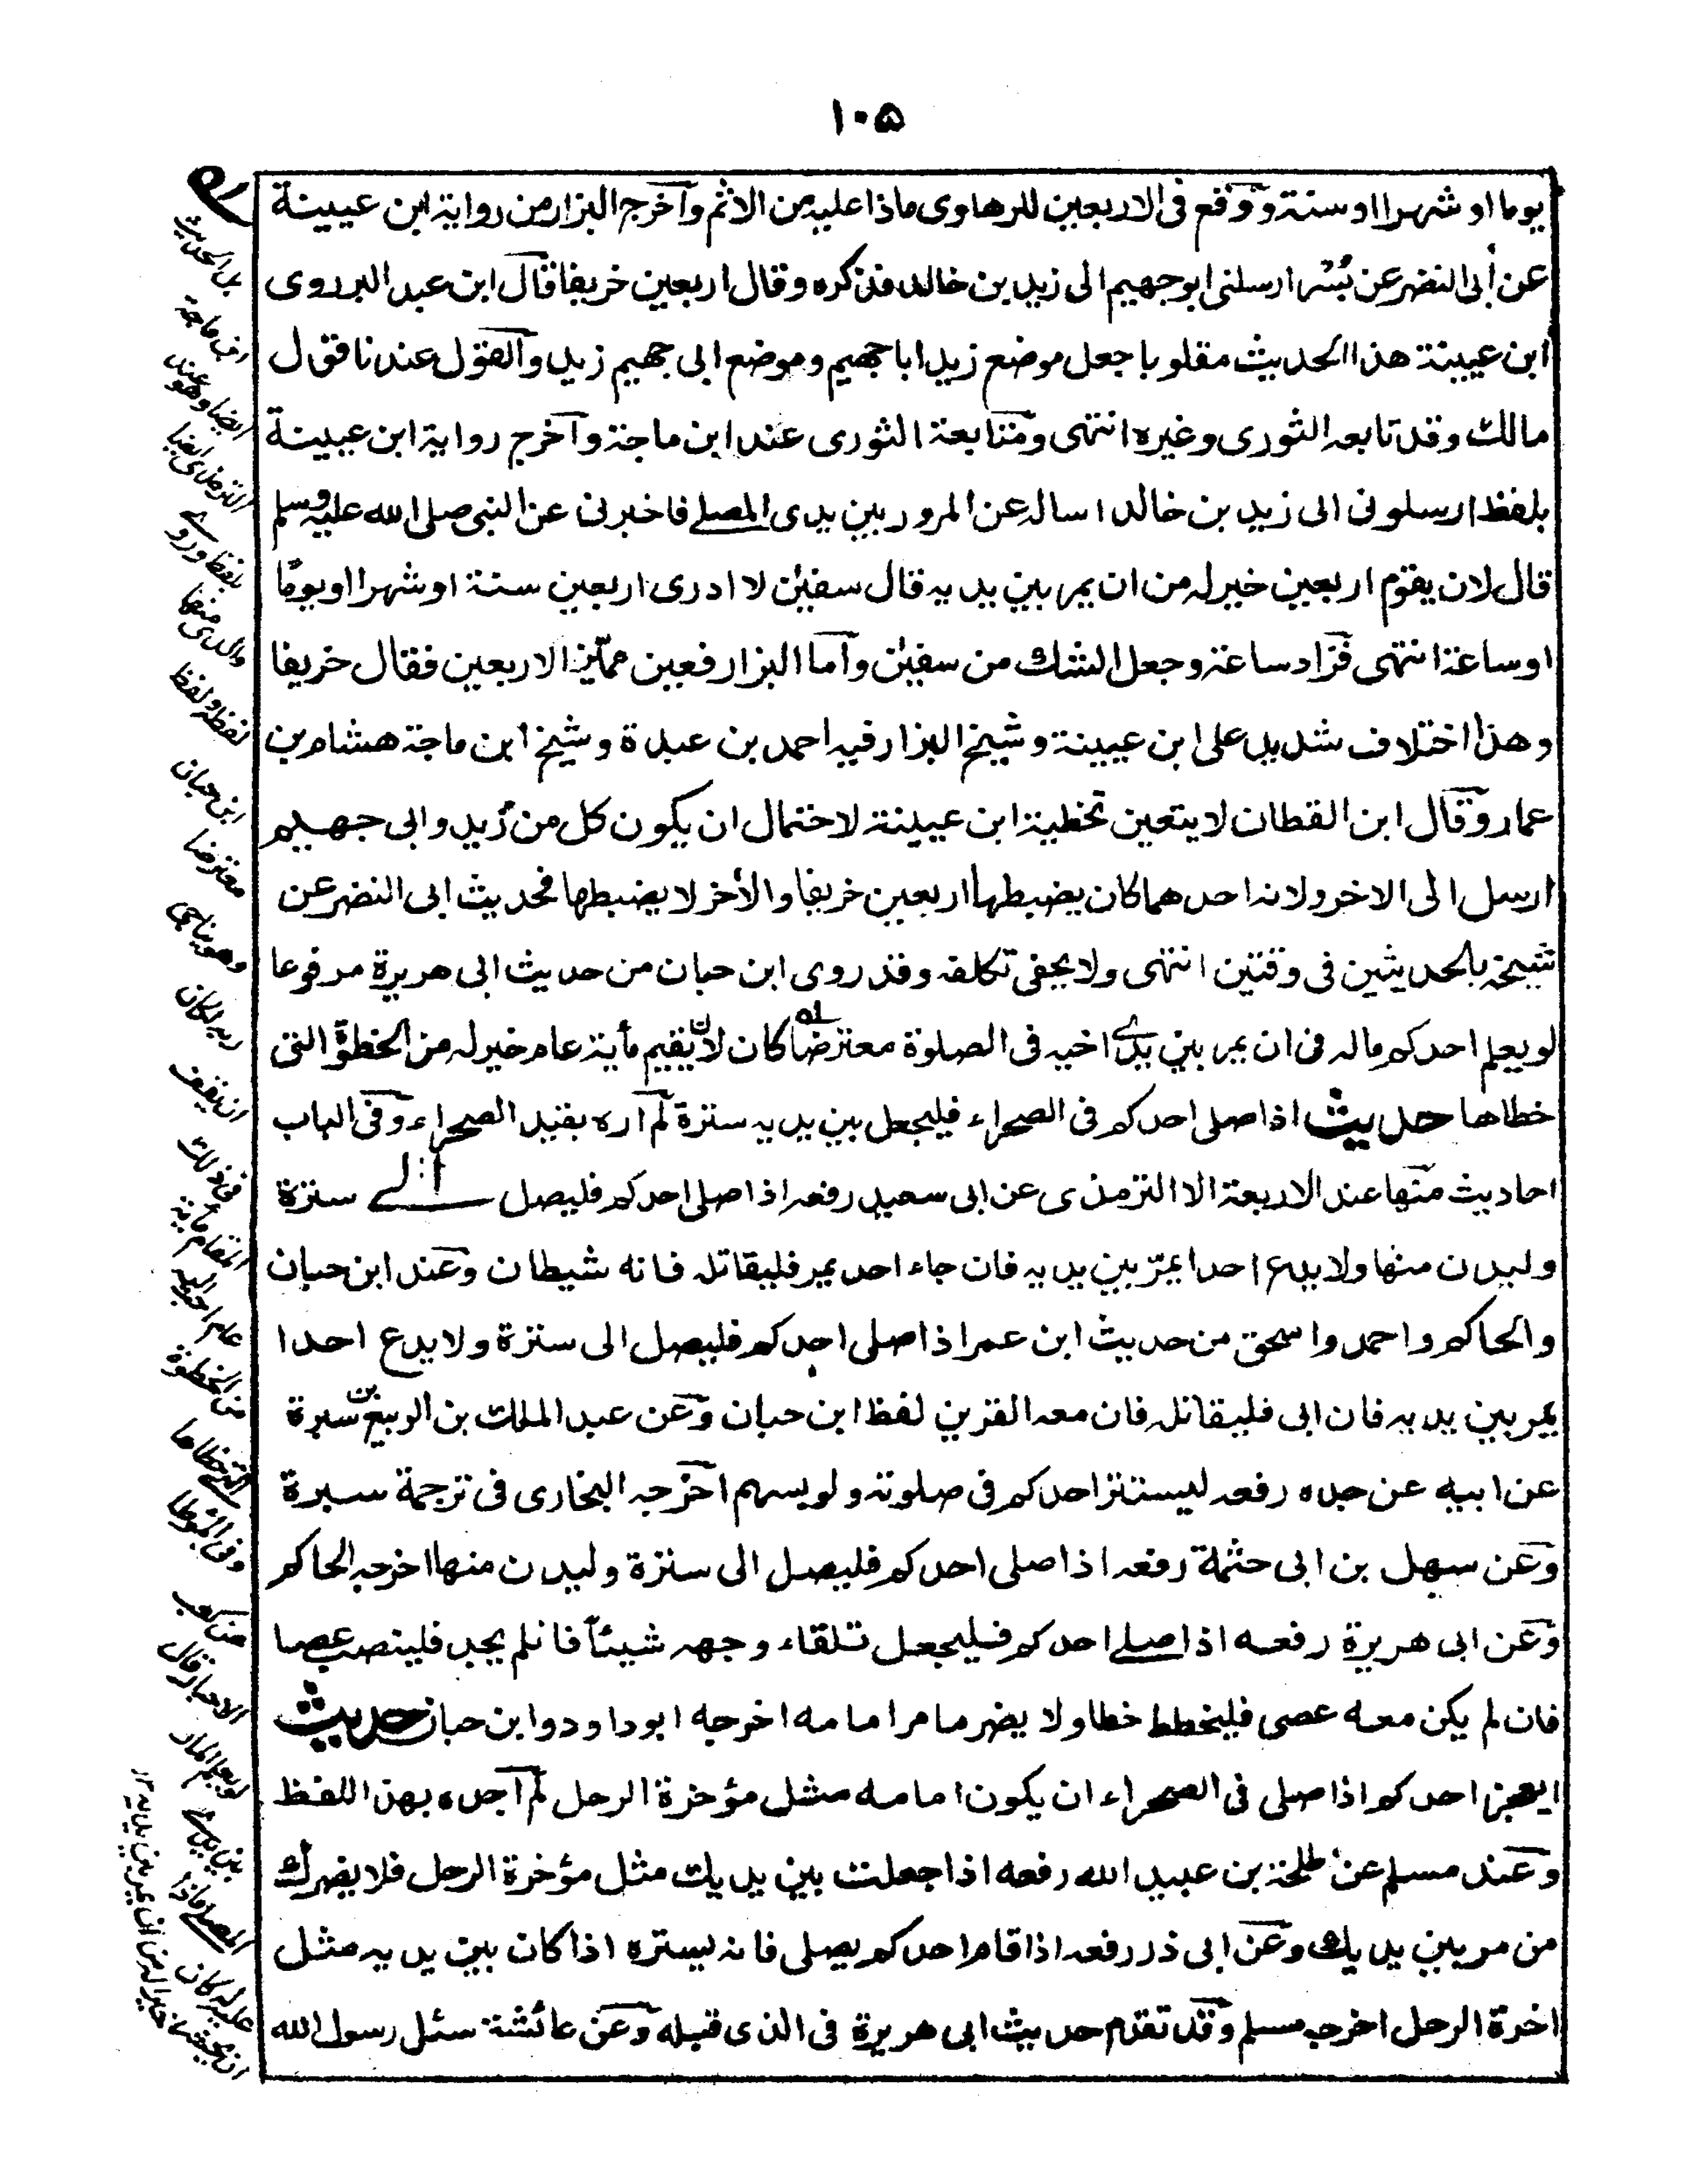 ١٠٥
يوما او شهرا او سنة ووقع فى الاربعين للرهاوى ماذا عليه من الاثم وآخرج البزار من رواية ابن عيينة
عن أبى النضر عن بُسْر ارسلنى ابو جهيم الى زيد بن خالد فذكره وقال اربعين خريفا قال ابن عبد البر روى
ابن عيينة هذا الحديث مقلوبا جعل موضع زيد ابا جهيم وموضع ابى جهيم زيد والقول عندنا قول
مالك وقد تابعه الثورى وغيره انتهى ومتابعة الثورى عند ابن ماجة وآخرج رواية ابن عيينة
بلفظ ارسلونى الى زيد بن خالد اساله عن المرور بين يدى المصلے فاخبرنى عن النبى صلى الله عليه وسلم
قال لان يقوم اربعين خير له من ان يمر بين يديه قال سفين لا ادرى اربعين سنة او شهرا او يومًا
او ساعة انتهى فزاد ساعة وجعل الشك من سفين وآما البزار فعين مميّز الاربعين فقال خريفا
وهذا اختلاف شديد على ابن عيينة وشيخ البزار فيه احمد بن عبدة وشيخ ابن ماجة هشام بن
عمار وقال ابن القطان لا يتعين تخطية ابن عيينة لاحتمال ان يكون كل من زيد وابى جهيم
ارسل الى الاخر ولانه احدهما كان يضبطها اربعين خريفا والأخر لا يضبطها فحديث ابى النضر عن
شيخه بالحديثين فى وقتين انتهى ولا يخفى تكلفه وقد روى ابن حبان من حديث ابى هريرة مرفوعا
لو يعلم احدكم ماله فى ان يمر بين يدے اخيه فى الصلوة معترضا كان لان يقيم مأية عام خير له من الخطوة التى
خطاها حديث اذا صلى احدكم فى الصحراء فليجعل بين يديه سترة لم آره بقيد الصحراء وفى الباب
احاديث منها عند الاربعة الا الترمذى عن ابى سعيد رفعه اذا صلى احدكم فليصل الے سترة
وليدن منها ولا يدع احدا يمرّ بين يديه فان جاء احد يمر فليقاتله فانه شيطان وعند ابن حبان
والحاكم واحمد واسحق من حديث ابن عمر اذا صلى احدكم فليصل الى سترة ولا يدع احدا
يمر بين يديه فان ابى فليقاتله فان معه القرين لفظ ابن حبان وعن عبد الملك بن الربيع بن سبرة
عن ابيه عن جده رفعه ليستتر احدكم فى صلوته ولو بسهم اخرجه البخارى فى ترجمة سبرة
وعن سهل بن ابى حثمة رفعه اذا صلى احدكم فليصل الى سترة وليدن منها اخرجه الحاكم
وعن ابى هريرة رفعه اذا صلے احدكم فليجعل تلقاء وجهه شيئاً فانلم يجد فلينصب عصا
فان لم يكن معه عصى فليخطط خطا ولا يضر ما مر امامه اخرجه ابو داود وابن حبان حديث
ايعجز احدكم اذا صلى فى الصحراء ان يكون امامه مثل مؤخرة الرحل لم آجده بهذا اللفظ
وعند مسلم عن طلحة بن عبيد الله رفعه اذا جعلت بين يديك مثل مؤخرة الرحل فلا يضرك
من مر بين يديك وعن ابى ذر رفعه اذا قام احدكم يصلى فانه يستره اذا كان بين يديه مثل
اخرة الرحل اخرجه مسلم وقد تقدم حديث ابى هريرة فى الذى قبله وعن عائشة سئل رسول الله
بل الحديث
ابن ماجة
ايضا وهو عند
بلفظ وروے
ولفظ
ابن حبان
معترضا
ان يقف
فى ذلك
المقام مأية
عام احب اليه
من الخطوة
التے خطاها
وفى الموطا
عن كعب
الاحبار قال
لو يعلم المار
بين يدے
المصلے ماذا
عليه لكان
ان يخسف به خيرا له من ان يمر بين يديه ١٢